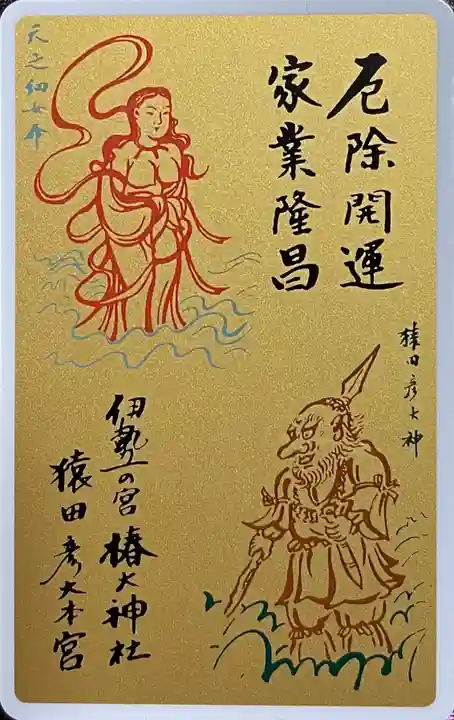 厄除開運
家業隆昌
天之細女命
猿田彦大神
伊勢一の宮 椿大神社
猿田彦大本宮